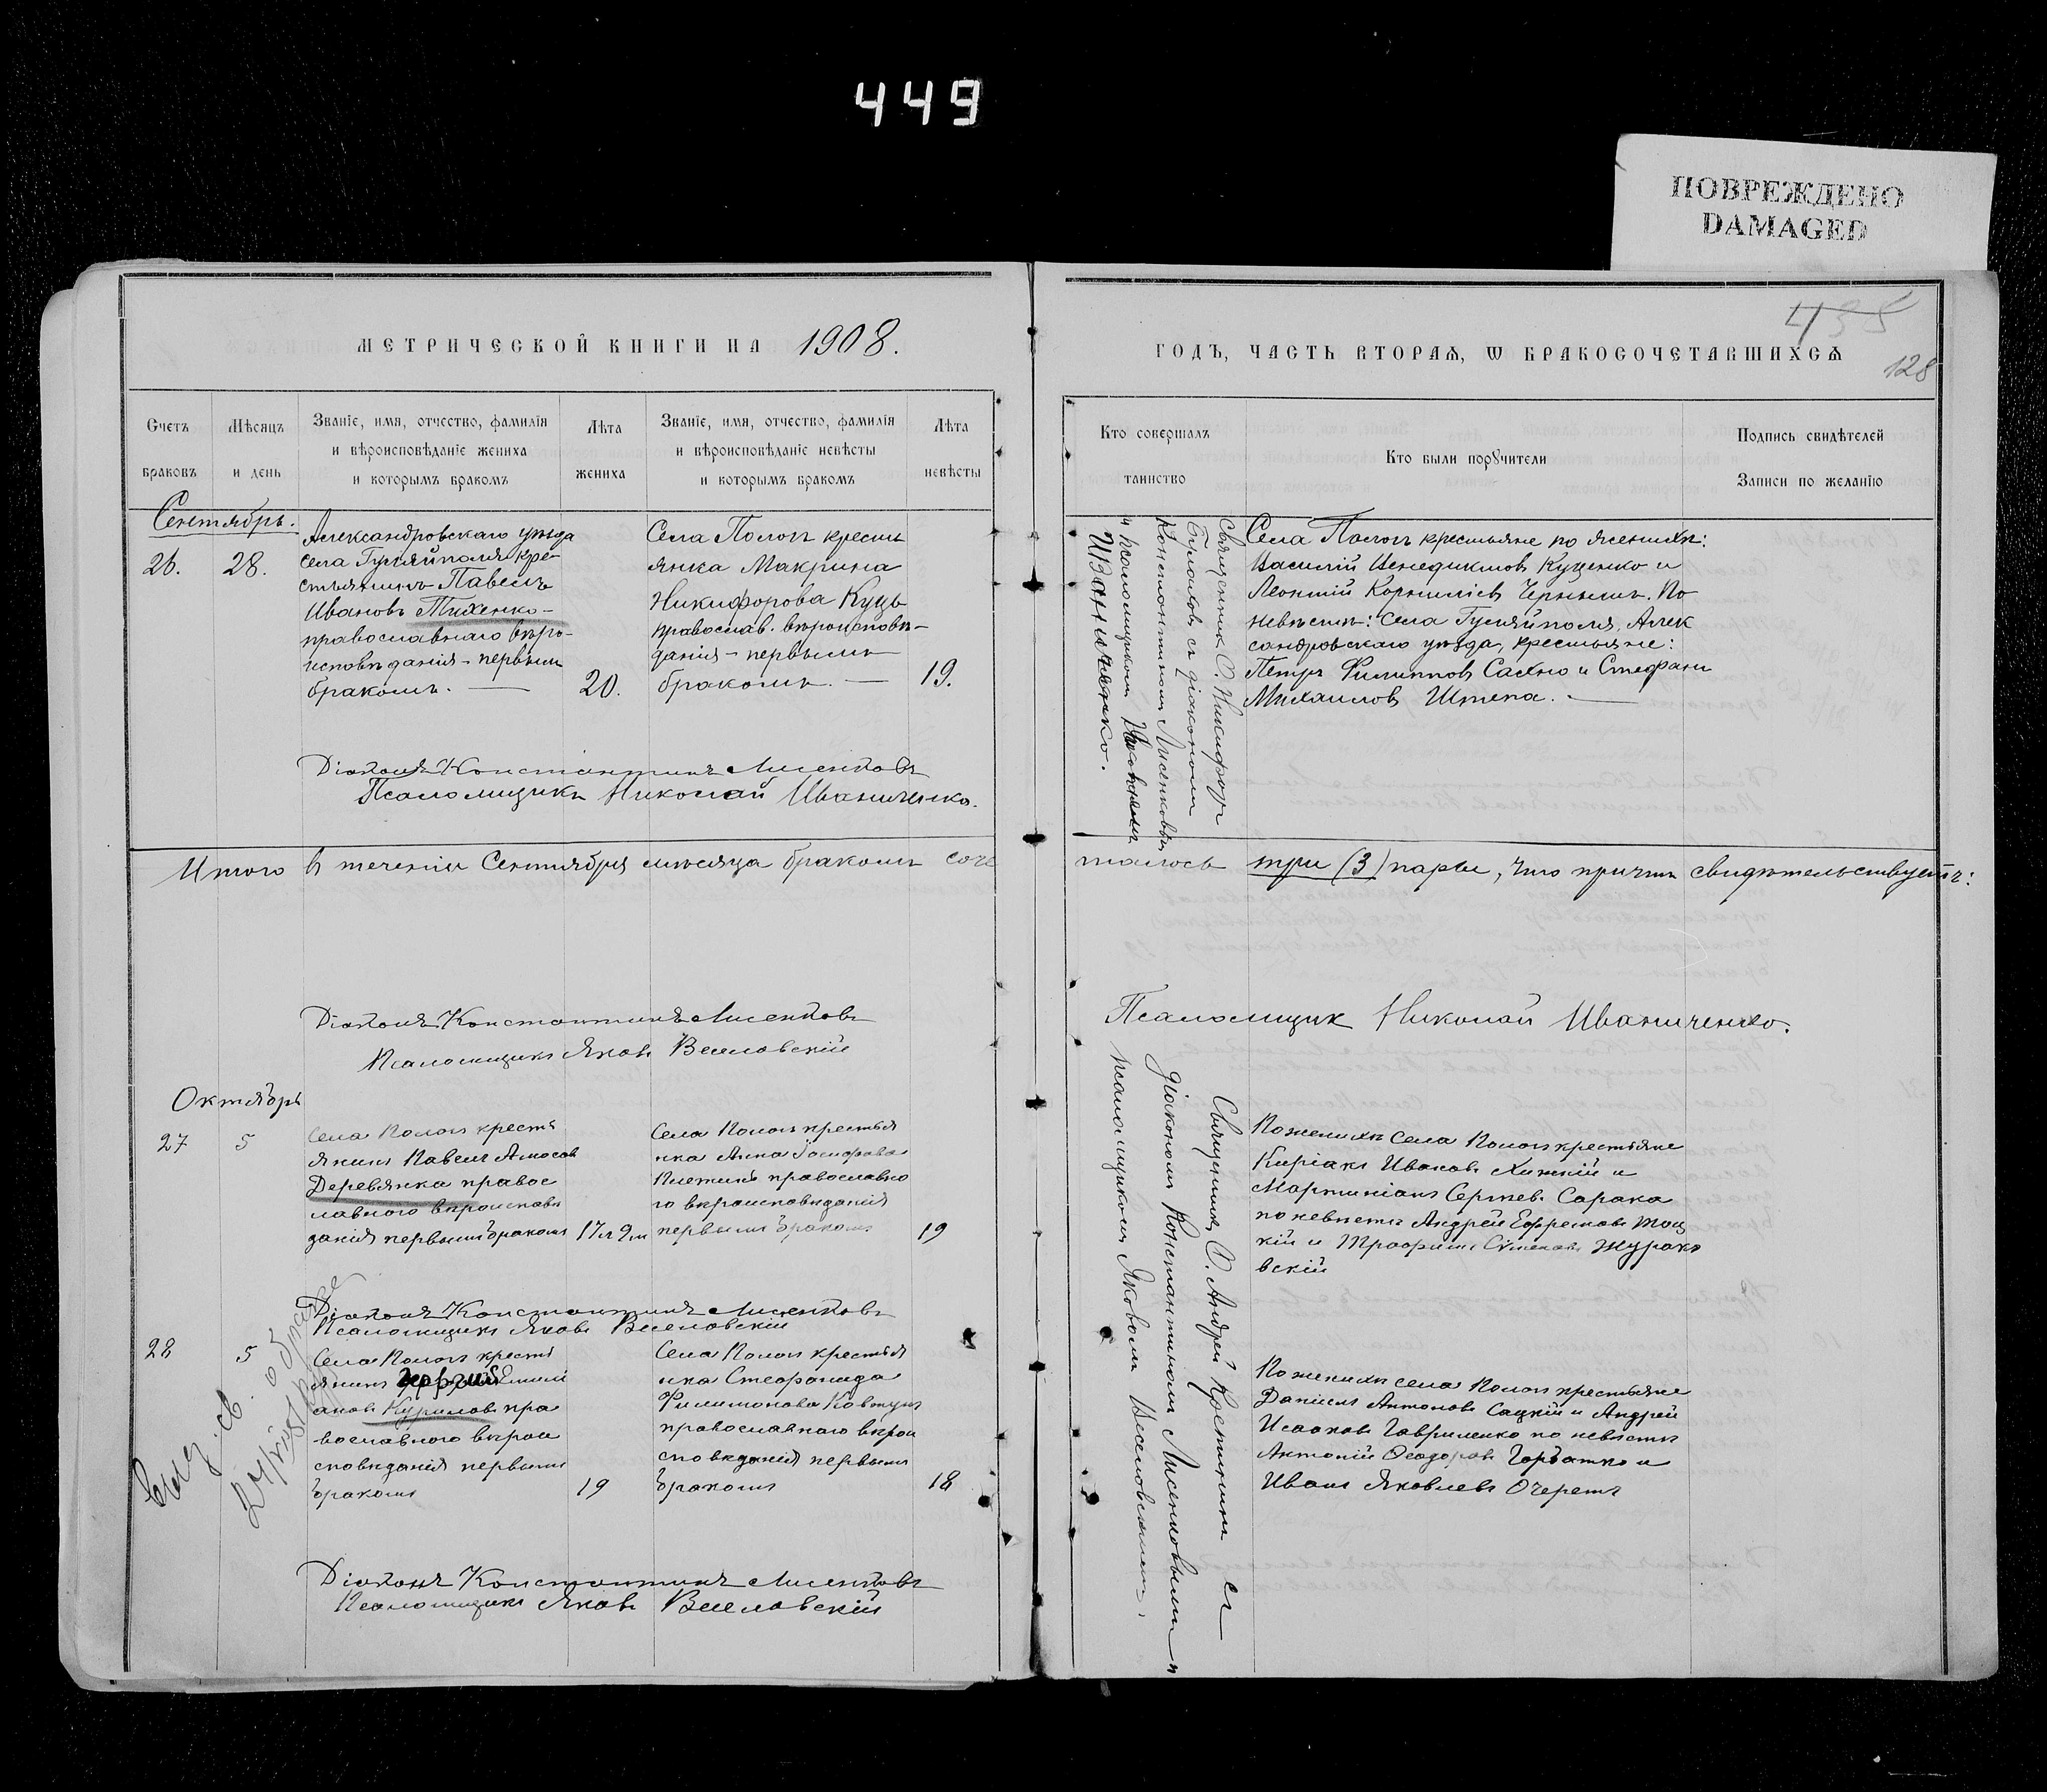 449
ПОВРЕЖДЕНО
DAMAGED
МЕТРИЧЕСКОЙ КНИГИ НА 1908.
ГОДЪ, ЧАСТЬ ВТОРАѦ, Ѡ БРАКОСОЧЕТАВШИХСѦ
435
128
Счетъ браковъ
Мѣсяцъ и день
Званіе, имя, отчество, фамилія
и вѣроисповѣданіе жениха
и которымъ бракомъ
Лѣта жениха
Званіе, имя, отчество, фамилія
и вѣроисповѣданіе невѣсты
и которымъ бракомъ
Лѣта невѣсты
Кто совершалъ таинство
Кто были порȣчители
Подпись свидѣтелей
Записи по желанію
Сентябрь.
26.
28.
Александровскаго уѣзда
села Гуляйполя кре-
стьянинъ Павелъ
Ивановъ Тихенко-
православнаго вѣро-
исповѣданія - первымъ
бракомъ. —
20.
Села Пологъ крестья
янка Макрина
Никифорова Куць
православ. вѣроисповѣ-
данія - первымъ
бракомъ. —
19.
Священникъ О. Никифоръ
съ діакономъ
Константиномъ Лисенковымъ
и псаломщикомъ
Иваниченко.
Села Пологъ крестьяне по женихѣ:
Василій Венедиктовъ Куценко и
Леонтій Корниліевъ Черныш. По
невѣстѣ: села Гуляйполя, Алек
сандровскаго уѣзда, крестьяне:
Петръ Филипповъ Сахно и Стефанъ
Михаиловъ Штепа. —
Діаконъ Константинъ Лисенковъ
Псаломщикъ Николай Иваниченко.
Итого въ теченіи Сентября мѣсяца бракомъ соче
талось три (3) пары, что причтъ свидѣтельствуетъ:
Діаконъ Константинъ Лисенковъ
Псаломщикъ Николай Иваниченко.
Псаломщикъ Яковъ Веселовскій
Октябрь
27
5
Села Пологъ кресть
янинъ Павелъ Амосов
Деревянка правос
лавного вѣроисповѣ
данія первымъ бракомъ
17 л 9 м
Села Пологъ крестья
нка Анна
православно
го вѣроисповѣданія
первымъ бракомъ
19
Священникъ О. Андрей съ
діакономъ Константиномъ Лисенковымъ и
псаломщикомъ Яковомъ Веселовскимъ.
По женихѣ села Пологъ крестьяне
Киріакъ Ивановъ Хижній и
Мартиніанъ Сергѣев. Сарака
по невѣстѣ Андрей Ефремовъ Тоц
кій и Трофимъ Журав
вскій
Діаконъ Константинъ Лисенковъ
Псаломщикъ Яковъ Веселовскій
28
5
Села Пологъ кресть
янинъ
Куриловъ пра
вославного вѣрои
сповѣданія первымъ
бракомъ
19
Села Пологъ крестья
нка Стефанида
Филимонова
православнаго вѣрои
сповѣданія первымъ
бракомъ
18
По женихѣ села Пологъ крестьяне
Даніилъ Антоновъ Сацкій и Андрей
Исааковъ Гавриленко по невѣстѣ
Антоній Ѳеодоровъ Горбатко и
Иванъ Яковлевъ Очеретъ
Выд. св. о бракѣ
Діаконъ Константинъ Лисенковъ
Псаломщикъ Яковъ Веселовскій